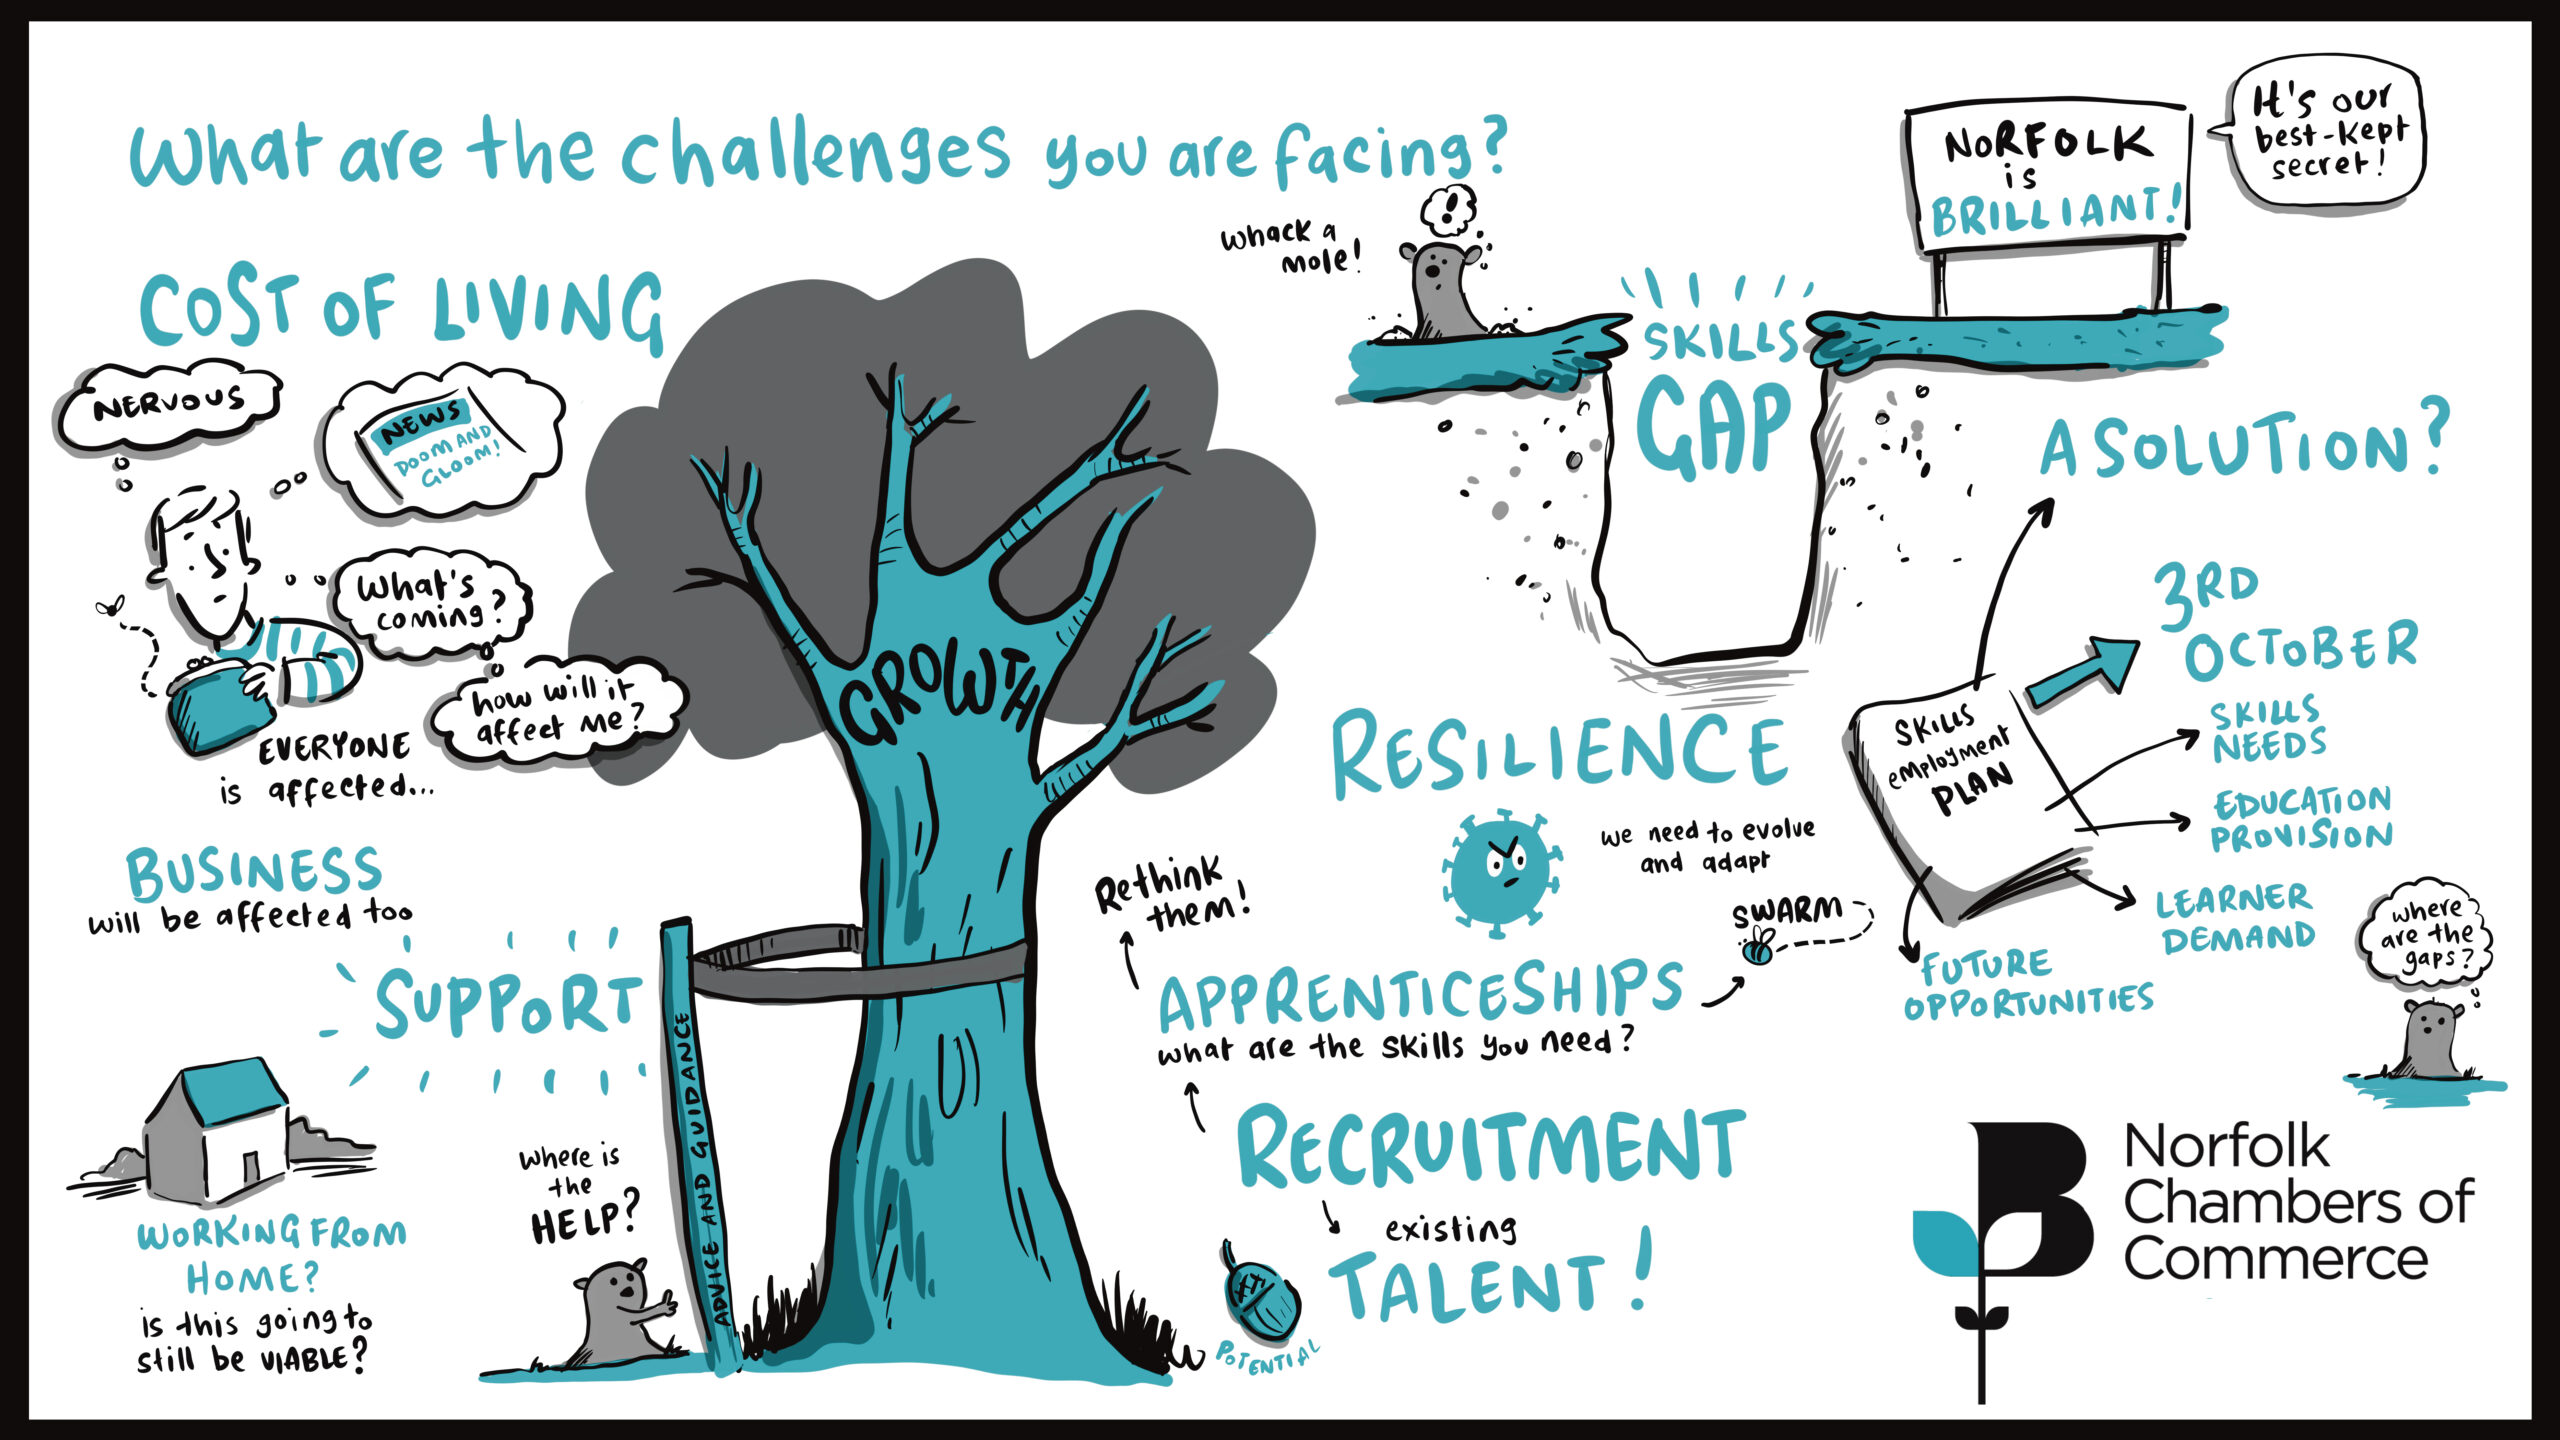 What are the challenges you are facing?
COST OF LIVING
NERVOUS
NEWS
DOOM AND
GLOOM!
What's
coming?
how will it
affect me?
EVERYONE
is affected...
BUSINESS
will be affected too
SUPPORT
WORKING FROM
HOME?
is this going to
still be VIABLE?
where is
the
HELP?
ADVICE AND GUIDANCE
GROWTH
whack a
mole!
!
SKILLS
GAP
NORFOLK
is
BRILLIANT!
It's our
best-kept
secret!
A SOLUTION?
3RD
OCTOBER
SKILLS
employment
PLAN
SKILLS
NEEDS
EDUCATION
PROVISION
LEARNER
DEMAND
FUTURE
OPPORTUNITIES
where
are the
gaps?
RESILIENCE
we need to evolve
and adapt
Rethink
them!
SWARM
APPRENTICESHIPS
what are the skills you need?
RECRUITMENT
existing
TALENT!
POTENTIAL
Norfolk
Chambers of
Commerce